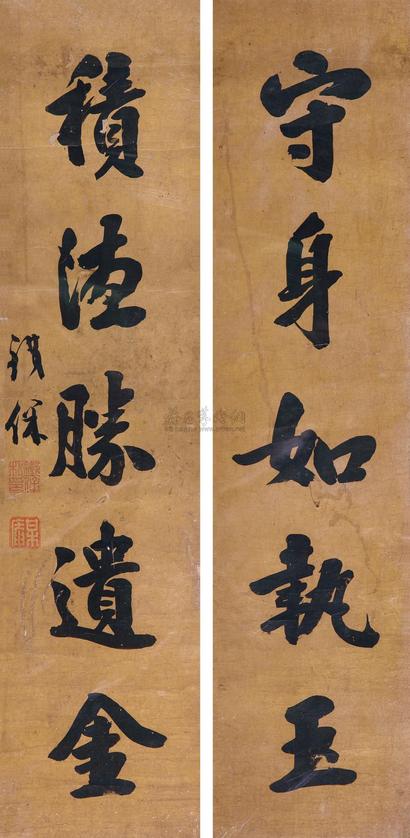 守身如執玉
積德勝遺金
鐵保